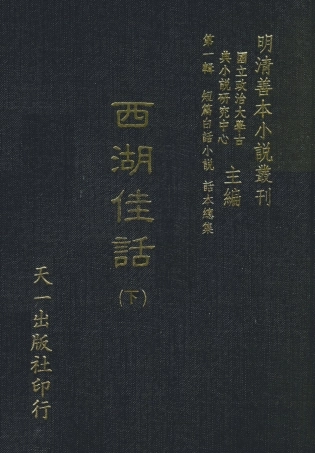 明清善本小說叢刊
國立政治大學古
典小說研究中心
主編
第一輯 短篇白話小說 話本總集
西湖佳話
(下)
天一出版社印行